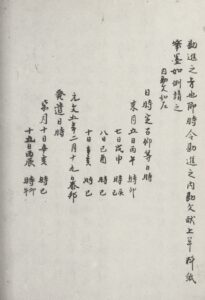 勘進之者也即時令勘進之内勘文献上早料紙
薄墨如例請之
内勘文如左
日時定吉何等日時
来月五日丙午 時卯
七日戊申 時辰
八日己酉 時巳
十日辛亥 時巳
元文五年二月十九日泰邦
発遣日時
某月十日辛亥 時巳
十五日丙辰 時卯